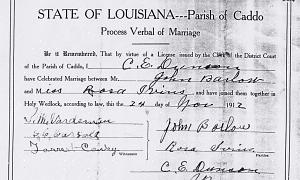 STATE OF LOUISIANA---Parish of Caddo
Process Verbal of Marriage
Be it Remembered, That by virtue of a License issued by the Clerk of the District Court
of the Parish of Caddo, I C. E. Dunson
have Celebrated Marriage between Mr. John Barlow
and Miss Rosa Irvins, and have joined them together in
Holy Wedlock, on this the 24 day of Nov 1912
John Barlow
Rosa Irvins
Witnesses Parties
C. E. Dunson